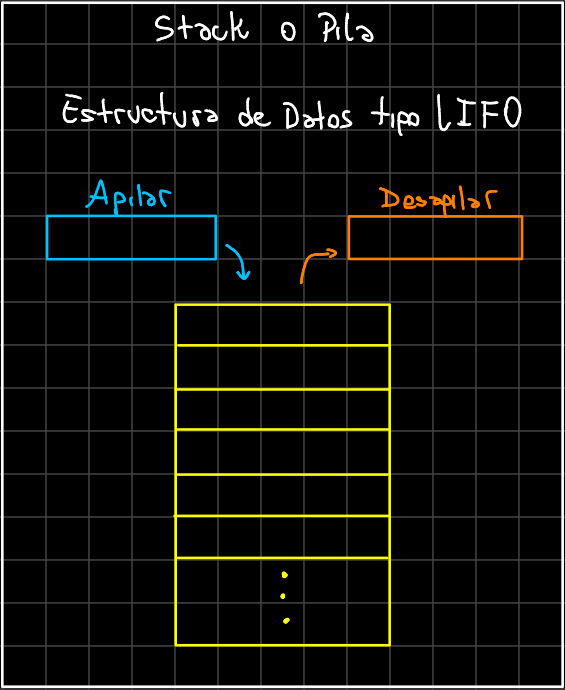 Stack o Pila
Estructura de Datos tipo LIFO
Apilar
Desapilar